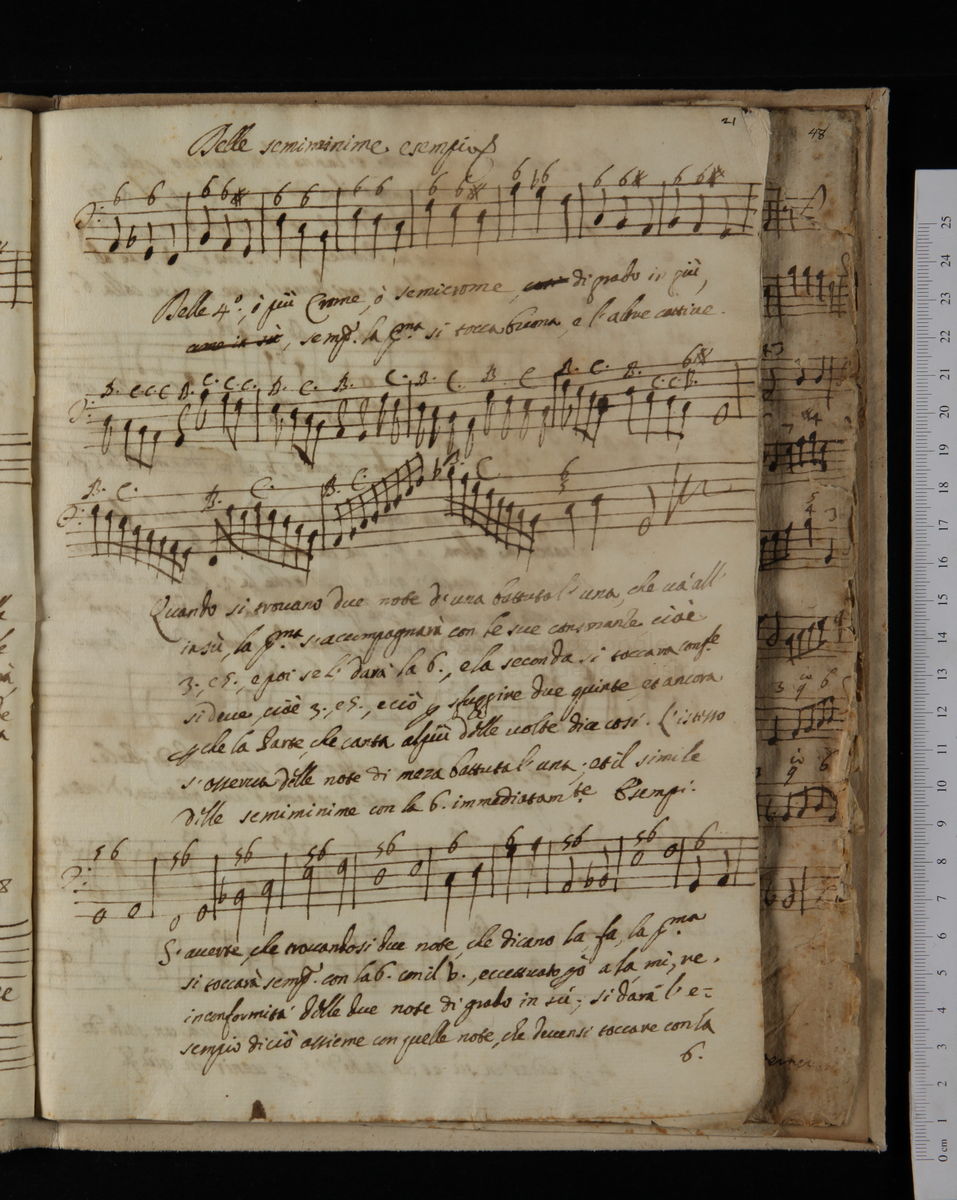 21
48
Delle semiminime esempio
6 6 6 6 6 6 6 6 6 6 6 ♭6 6 6 6 6
Delle 4°, ò più Crome, ò semicrome, di grado in più,
semp.e la p.ma si tocca buona, e l'altre cattive.
B. C C C B. C. C C. B. C. B. C. B. C. B. C B. C. B. C C B. 6
B. C. B. C. B. C. B. C 6 5
Quando si trovano due note d'una battuta l'una, che và all'
insù, la p.ma s'accompagnarà con le sue consonante cioè
3., e 5., e poi se l' darà la 6., e la seconda si toccara come
si deve, cioè 3., e 5., e ciò p sfuggire due quinte et ancora
che la Parte, che canta alpiù delle volte dice cosi. L'istesso
s'osserva delle note di meza battuta l'una, et il simile
delle semiminime con la 6. immediatam.te Esempi.
5 6 5 6 5 6 5 6 5 6 6 6 5 6 5 6 6
S'averte, che trovandosi due note, che dicano la fa, la p.ma
si toccarà semp.e con la 6. con il b., eccettuato a la mi, re.
inconformità delle due note di grado in sù, si darà l'e=
sempio di ciò assieme con quelle note, che devensi toccare con la
6.
0 cm 1 2 3 4 5 6 7 8 9 10 11 12 13 14 15 16 17 18 19 20 21 22 23 24 25